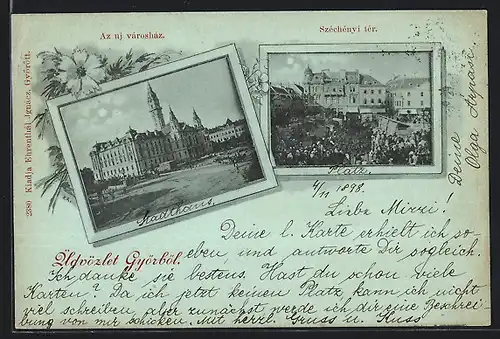 Az uj városház.
Széchényi tér.
2380 Kiadja Ehrenthál Ignácz, Győrött.
Stadthaus
Platz.
4/11 1898.
Üdvözlet Győrből.
Liebe Mizzi!
Deine l. Karte erhielt ich so-
eben, und antworte Dir sogleich.
Ich danke sie bestens. Hast du schon viele
Karten? Da ich jetzt keinen Platz, kann ich nicht
viel schreiben, aber zunächst werde ich dir eine Beschrei
bung von mir schicken. Mit herzl. Gruss u. Kuss
Deine
Olga